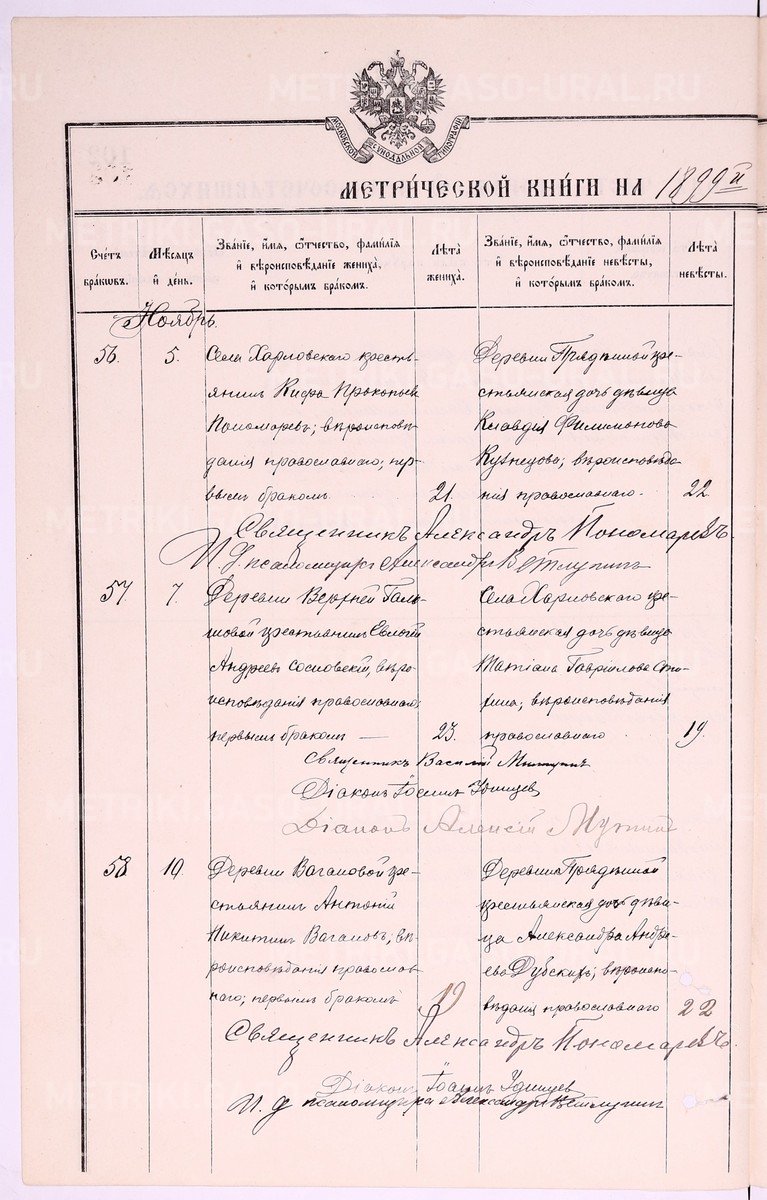 МОСКОВСКОЙ СѴНОДАЛЬНОЙ ТИПОГРАФІИ
МЕТРИ́ЧЕСКОЙ КНИ́ГИ НА 1899 й
Сче́тъ бра́кωвъ.
Мѣ́сяцъ и҆ де́нь.
Зва́нїе, и҆́мя, ѻ҆́тчество, фамилїя и҆ вѣроисповѣ́данїе жениха̀, и҆ кото́рымъ бра́комъ.
Лѣ́та жениха̀.
Зва́нїе, и҆́мя, ѻ҆́тчество, фамилїя и҆ вѣроисповѣ́данїе невѣ́сты, и҆ кото́рымъ бра́комъ.
Лѣ́та невѣ́сты.
Ноябрь.
56.
5.
Села Харловскаго кресть-
янинъ Кифа Прокопьев
Пономаревъ; вѣроисповѣ-
данія православнаго; пер-
вымъ бракомъ.
21.
Деревни Прядѣиной кре-
стьянская дочь дѣвица
Клавдія Филимонова
Кузнецова; вѣроисповѣда-
нія православнаго.
22.
Священникъ Александръ Пономаревъ.
И. д. псаломщика Александръ Ветлугинъ
57
7.
Деревни Верхней
крестьянинъ Евлогій
Андреевъ Сосновскій, вѣро-
исповѣданія православнаго,
первымъ бракомъ —
23.
Села Харловскаго кре-
стьянская дочь дѣвица
Татіана Гавріилова
вѣроисповѣданія
православнаго
19.
Священникъ Василій
Діаконъ Іоаннъ Удинцев
Діаконъ Алексій
58
10.
Деревни Вагановой кре-
стьянинъ Антоній
Никитинъ Вагановъ, вѣ-
роисповѣданія православ-
наго; первымъ бракомъ
19
Деревни Прядѣиной
крестьянская дочь дѣви-
ца Александра Андре-
ева Дубскихъ; вѣроиспо-
вѣданія православнаго
22
Священникъ Александръ Пономаревъ.
Діаконъ Іоаннъ Удинцев
И. д псаломщика Александръ Ветлугинъ
METRIKI.GASO-URAL.RU